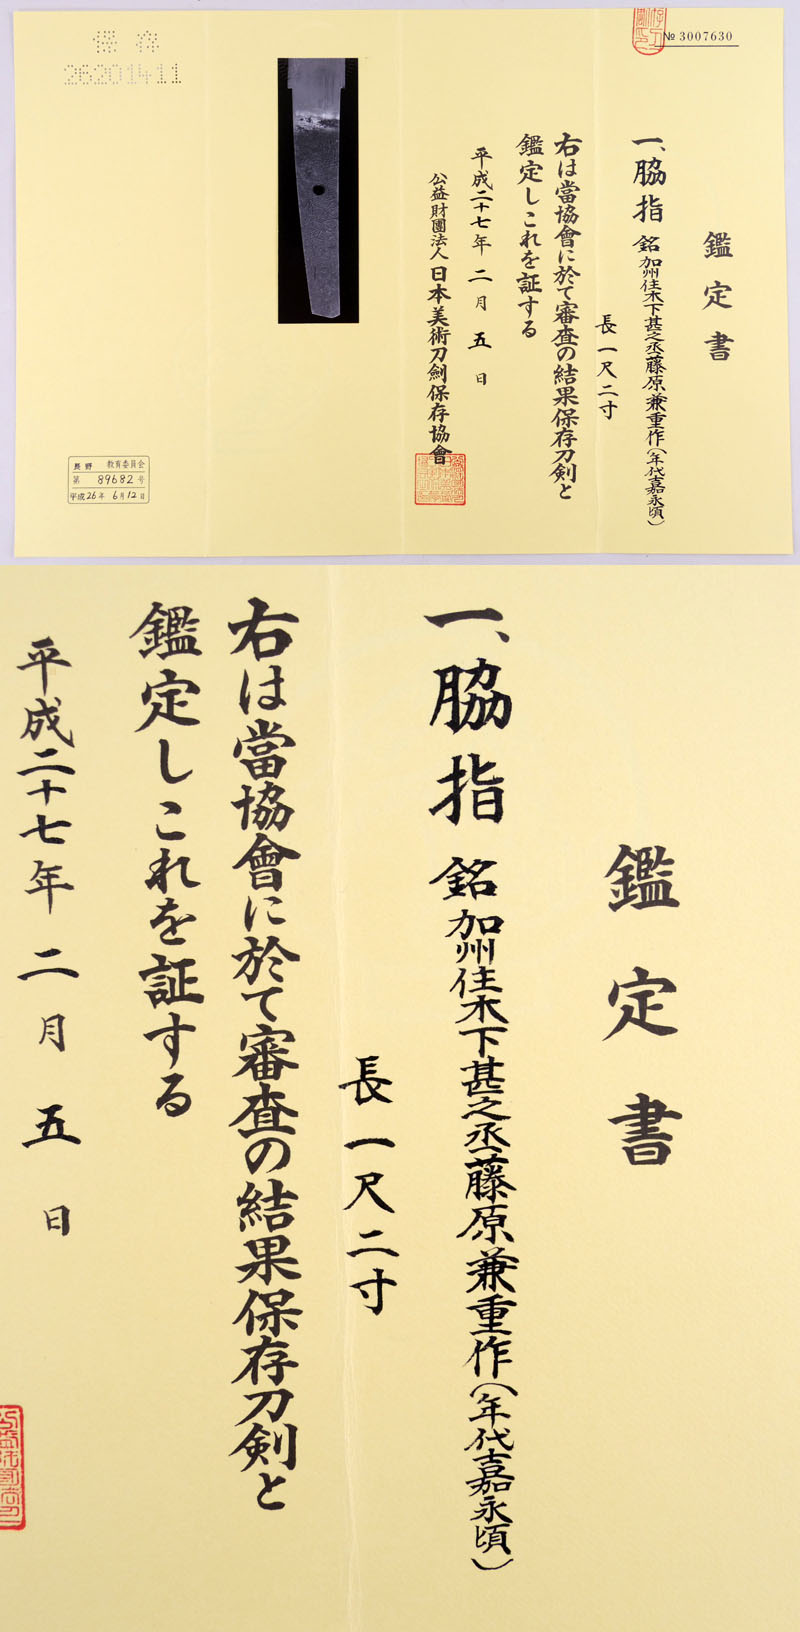 保存
26201411
№ 3007630
鑑定書
一、脇指 銘 加州住木下甚之丞藤原兼重作(年代嘉永頃)
長一尺二寸
右は當協會に於て審査の結果保存刀剣と
鑑定しこれを証する
平成二十七年二月五日
公益財團法人日本美術刀劍保存協會
長野 教育委員会
第 89682 号
平成26年 6月12日
鑑定書
一、脇指 銘 加州住木下甚之丞藤原兼重作(年代嘉永頃)
長一尺二寸
右は當協會に於て審査の結果保存刀剣と
鑑定しこれを証する
平成二十七年二月五日